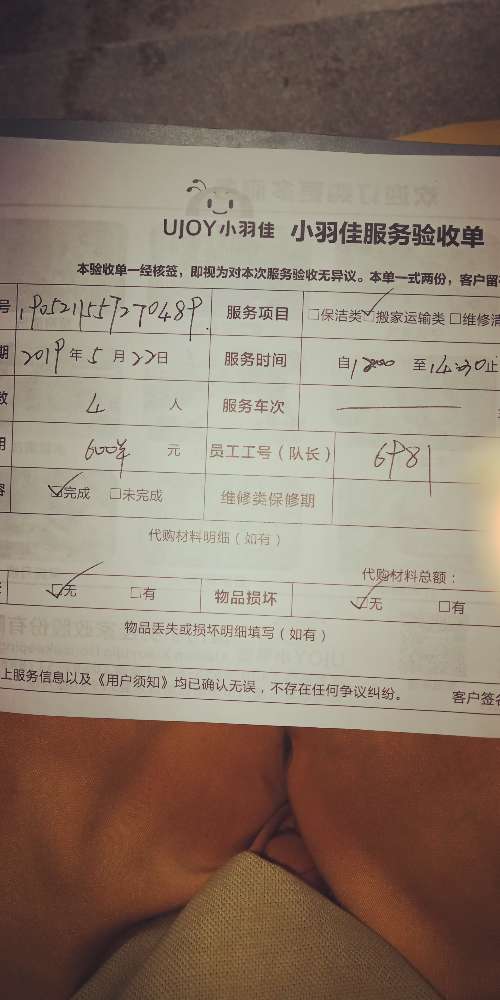 UJOY小羽佳 小羽佳服务验收单
本验收单一经核签，即视为对本次服务验收无异议。本单一式两份，客户留
号 1905211557270489 服务项目 □保洁类☑搬家运输类□维修清
期 2019年5月22日 服务时间 自 至14:30止
数 4 人 服务车次
用 600 元 员工工号（队长） 6981
容 ☑完成 □未完成 维修类保修期
代购材料明细（如有）
代购材料总额：
☑无 □有 物品损坏 ☑无 □有
物品丢失或损坏明细填写（如有）
上服务信息以及《用户须知》均已确认无误，不存在任何争议纠纷。 客户签名